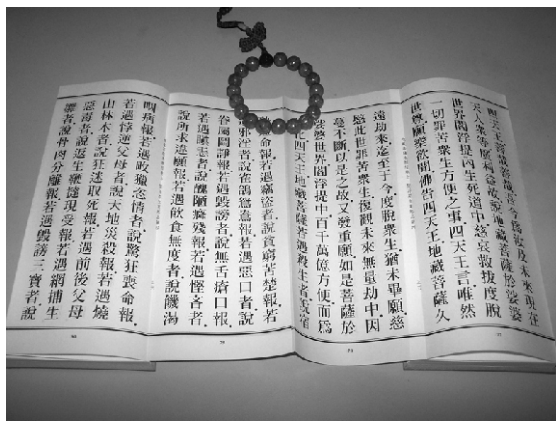 四天王善哉善哉吾今為汝及未來現在
天人眾等廣利益故說地藏菩薩於娑婆
世界閻浮提內生死道中慈哀救拔度脫
一切罪苦眾生方便之事四天王言唯然
世尊願樂欲聞佛告四天王地藏菩薩久
遠劫來迄至于今度脫眾生猶未畢願慈
愍此世罪苦眾生復觀未來無量劫中因
蔓不斷以是之故又發重願如是菩薩於
娑婆世界閻浮提中百千萬億方便而為
化四天王地藏菩薩若遇殺生者說宿
命報若遇竊盜者說貧窮苦楚報若
邪淫者說雀鴿鴛鴦報若遇惡口者說
眷屬鬭諍報若遇毀謗者說無舌瘡口報
若遇瞋恚者說醜陋癃殘報若遇慳吝者
說所求違願報若遇飲食無度者說饑渴
咽病報若遇畋獵恣情者說驚狂喪命報
若遇悖逆父母者說天地災殺報若遇燒
山林木者說狂迷取死報若遇前後父母
惡毒者說返生鞭撻現受報若遇網捕生
雛者說骨肉分離報若遇毀謗三寶者說